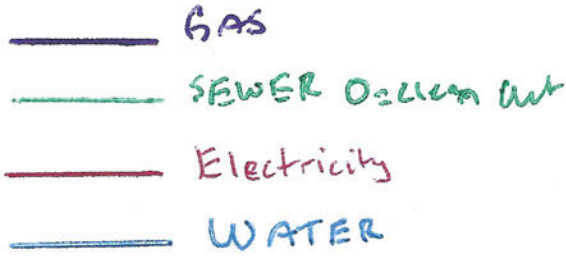 GAS
SEWER O=Clean Out
Electricity
WATER